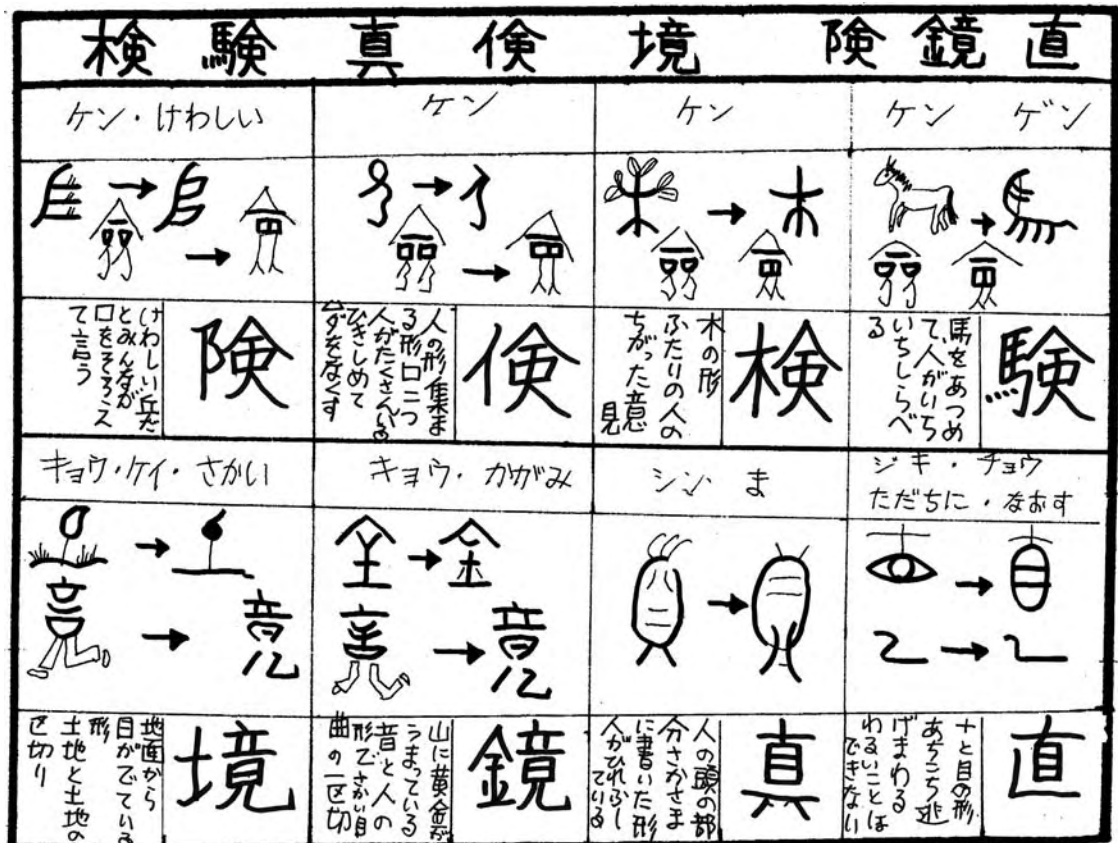 検 験 真 倹 境 険 鏡 直
ケン・けわしい
険
けわしい丘だ
とみんなが
口をそろえ
て言う
ケン
倹
人の形集ま
る形口二つ
人がたくさんいる
ひきしめて
ムダをなくす
ケン
検
木の形
ふたりの人の
ちがった意見
ケン ゲン
験
馬をあつめ
て、人がいち
いちしらべ
る
キョウ・ケイ・さかい
境
地面から
目がでている
形
土地と土地の
区切り
キョウ・かがみ
鏡
山に黄金が
うまっている
音と人の
形でさかい目
曲の一区切
シン ま
真
人の頭の部
分さかさま
に書いた形
人がひれふし
ている
ジキ・チョウ
ただちに・なおす
直
十と目の形
あちこち逃
げまわる
わるいことは
できない